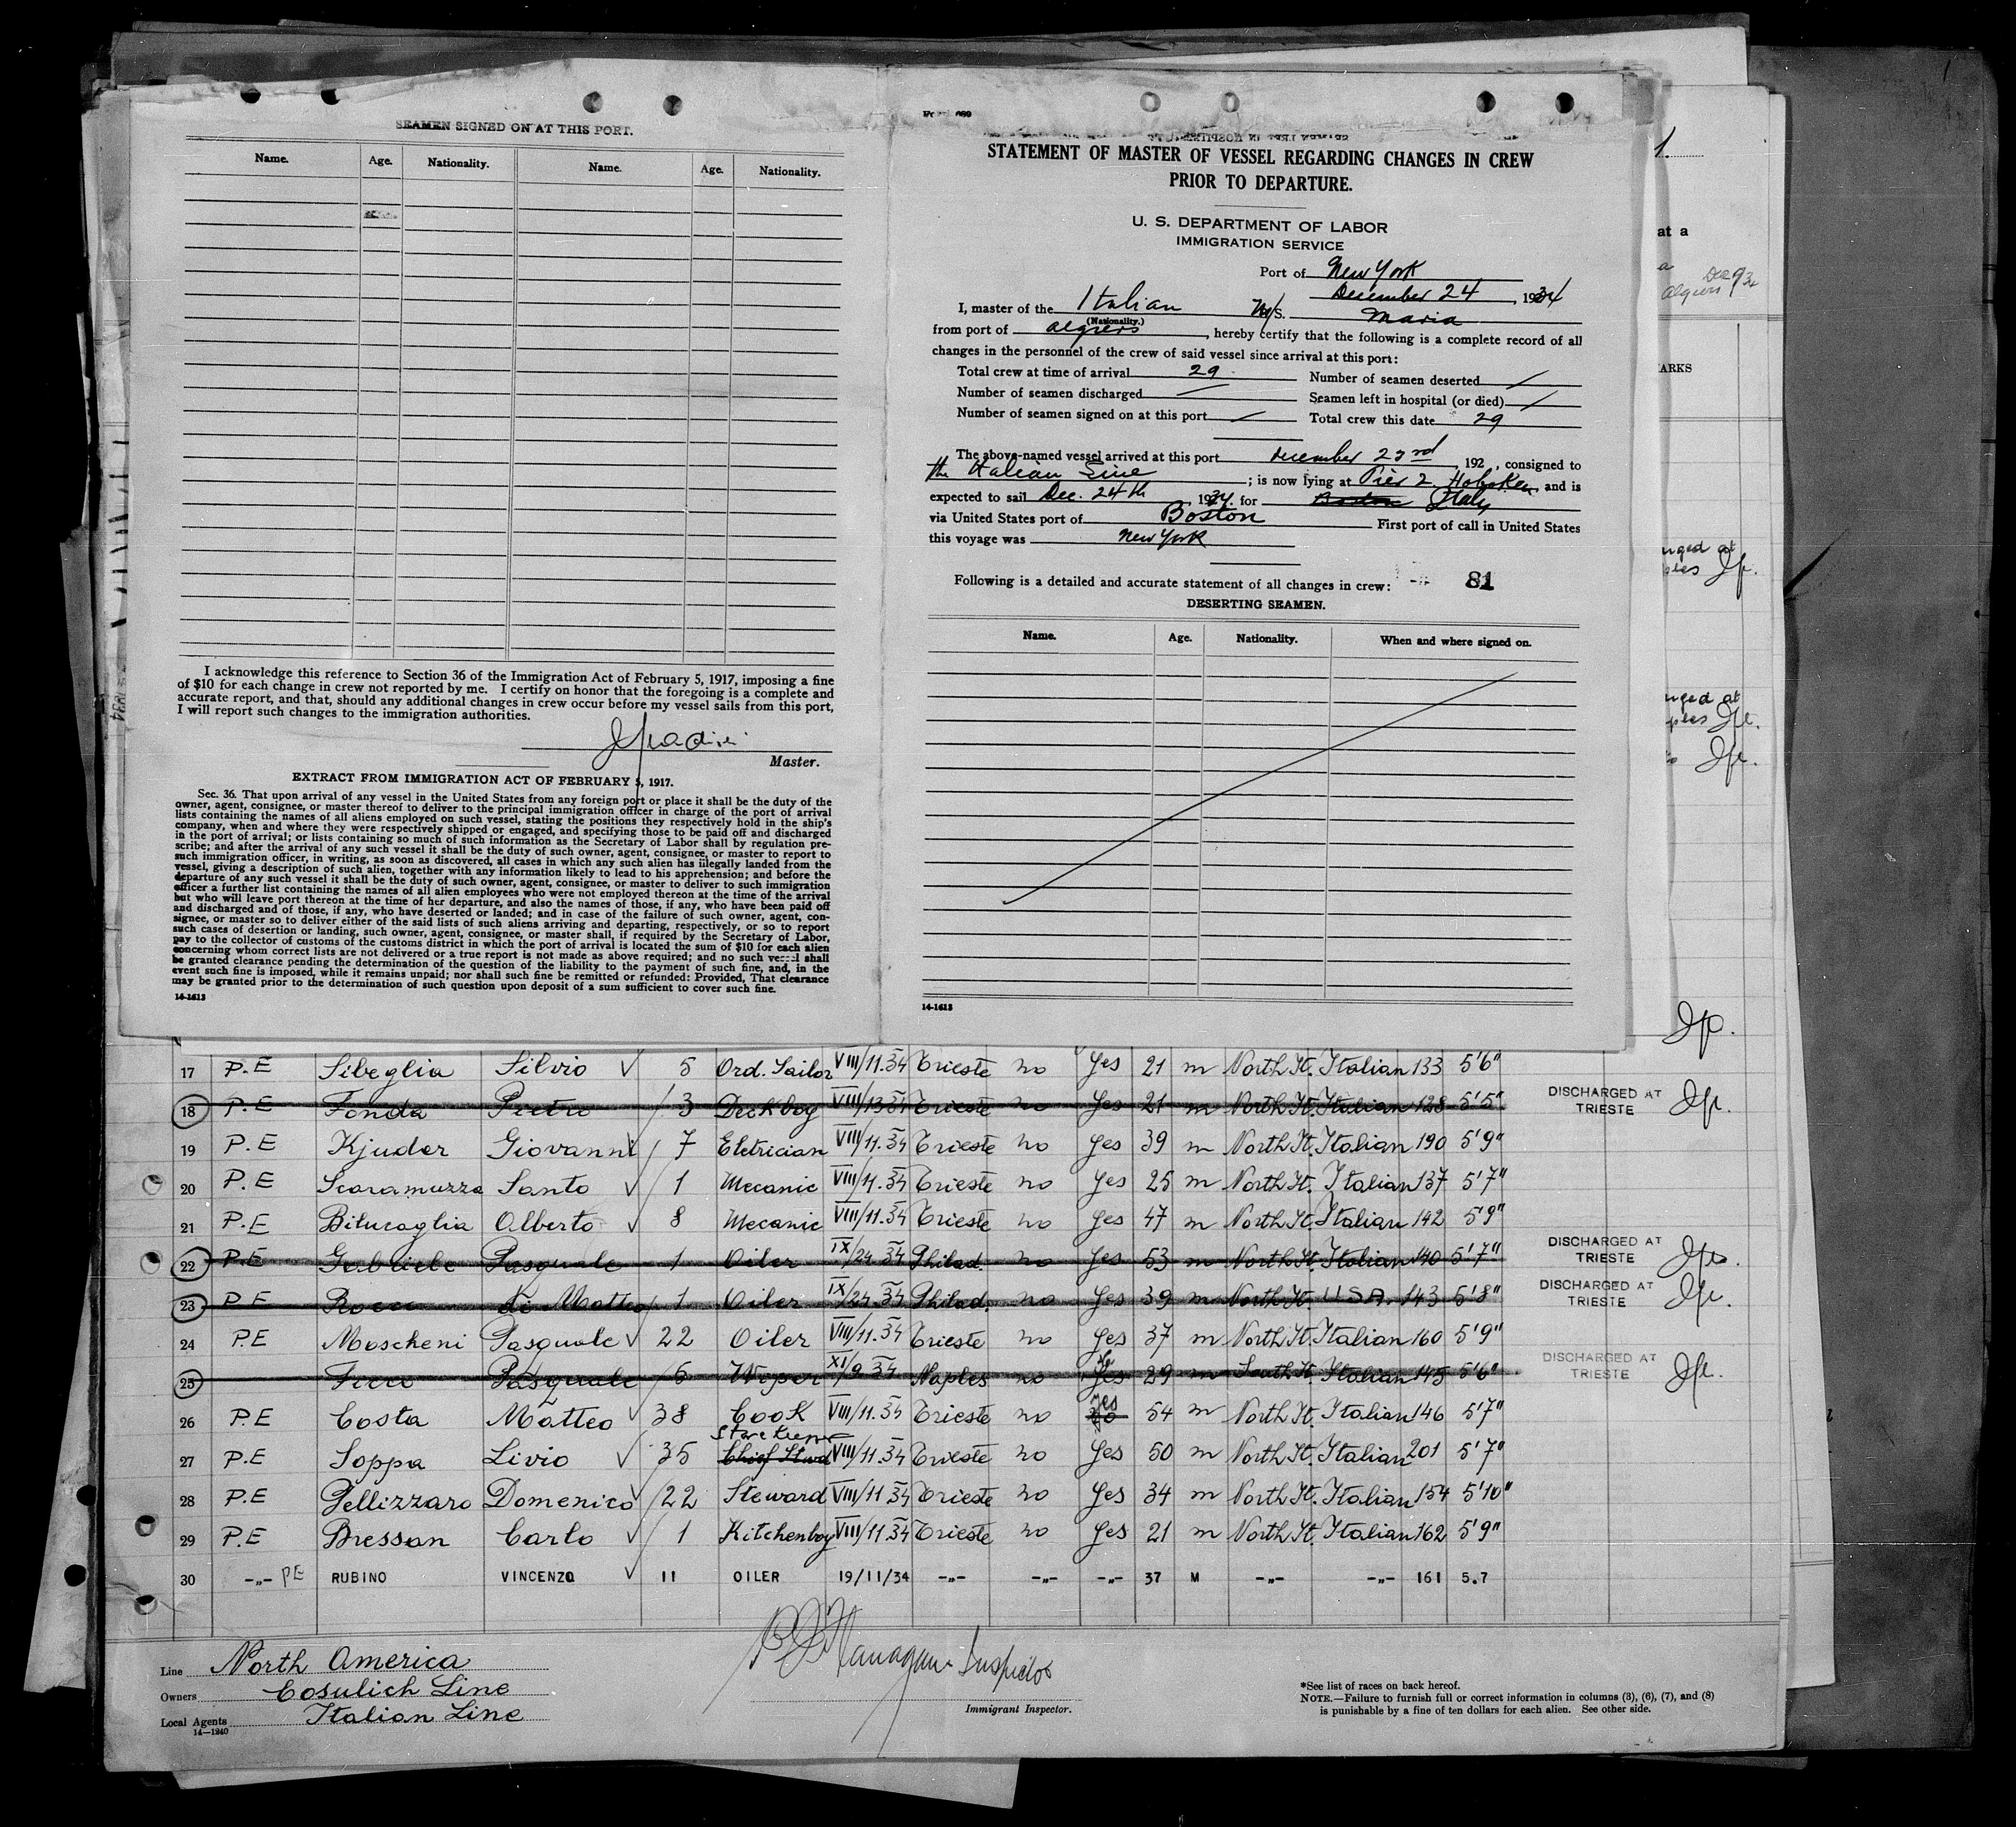 SEAMEN SIGNED ON AT THIS PORT.
Name. Age. Nationality. Name. Age. Nationality.
I acknowledge this reference to Section 36 of the Immigration Act of February 5, 1917, imposing a fine
of $10 for each change in crew not reported by me. I certify on honor that the foregoing is a complete and
accurate report, and that, should any additional changes in crew occur before my vessel sails from this port,
I will report such changes to the immigration authorities.
Master.
EXTRACT FROM IMMIGRATION ACT OF FEBRUARY 5, 1917.
Sec. 36. That upon arrival of any vessel in the United States from any foreign port or place it shall be the duty of the
owner, agent, consignee, or master thereof to deliver to the principal immigration officer in charge of the port of arrival
lists containing the names of all aliens employed on such vessel, stating the positions they respectively hold in the ship's
company, when and where they were respectively shipped or engaged, and specifying those to be paid off and discharged
in the port of arrival; or lists containing so much of such information as the Secretary of Labor shall by regulation pre-
scribe; and after the arrival of any such vessel it shall be the duty of such owner, agent, consignee, or master to report to
such immigration officer, in writing, as soon as discovered, all cases in which any such alien has illegally landed from the
vessel, giving a description of such alien, together with any information likely to lead to his apprehension; and before the
departure of any such vessel it shall be the duty of such owner, agent, consignee, or master to deliver to such immigration
officer a further list containing the names of all alien employees who were not employed thereon at the time of the arrival
but who will leave port thereon at the time of her departure, and also the names of those, if any, who have been paid off
and discharged and of those, if any, who have deserted or landed; and in case of the failure of such owner, agent, con-
signee, or master so to deliver either of the said lists of such aliens arriving and departing, respectively, or so to report
such cases of desertion or landing, such owner, agent, consignee, or master shall, if required by the Secretary of Labor,
pay to the collector of customs of the customs district in which the port of arrival is located the sum of $10 for each alien
concerning whom correct lists are not delivered or a true report is not made as above required; and no such vessel shall
be granted clearance pending the determination of the question of the liability to the payment of such fine, and, in the
event such fine is imposed, while it remains unpaid; nor shall such fine be remitted or refunded: Provided, That clearance
may be granted prior to the determination of such question upon deposit of a sum sufficient to cover such fine.
14-1613
STATEMENT OF MASTER OF VESSEL REGARDING CHANGES IN CREW
PRIOR TO DEPARTURE.
U. S. DEPARTMENT OF LABOR
IMMIGRATION SERVICE
Port of New York
December 24, 1934
I, master of the Italian M/S. Maria
(Nationality.)
from port of Algiers, hereby certify that the following is a complete record of all
changes in the personnel of the crew of said vessel since arrival at this port:
Total crew at time of arrival 29 Number of seamen deserted /
Number of seamen discharged — Seamen left in hospital (or died) /
Number of seamen signed on at this port — Total crew this date 29
The above-named vessel arrived at this port December 23rd, 192 , consigned to
the Italian Line; is now lying at Pier 2 Hoboken, and is
expected to sail Dec. 24th, 1934. for Boston Italy
via United States port of Boston First port of call in United States
this voyage was New York
Following is a detailed and accurate statement of all changes in crew: 81
DESERTING SEAMEN.
Name. Age. Nationality. When and where signed on.
14-1613
1.
at a
Algiers Dec 9 34
17 P.E Sibeglia Silvio √ 5 Ord. Sailor VIII/11.34 Trieste no yes 21 m North It. Italian 133 5'6"
18 P.E Fonda Pietro / 3 Deckboy VIII/13 34 Trieste no yes 21 m North It. Italian 128 5'5" DISCHARGED AT TRIESTE
19 P.E Kjuder Giovanni √ 7 Eletrician VIII/11.34 Trieste no yes 39 m North It. Italian 190 5'9"
20 P.E Scaramuzza Santo √ 1 Mecanic VIII/11.34 Trieste no yes 25 m North It. Italian 137 5'7"
21 P.E Bilucaglia Alberto √ 8 Mecanic VIII/11.34 Trieste no yes 47 m North It. Italian 142 5'9"
22 P.E Gabriele Pasquale 1 Oiler IX/24.34 Philad. no yes 53 m North It. Italian 140 5'7" DISCHARGED AT TRIESTE
23 P.E Rocco di Matteo 1 Oiler IX/24.34 Philad. no yes 39 m North It. U.S.A. 143 5'8" DISCHARGED AT TRIESTE
24 P.E Moscheni Pasquale √ 22 Oiler VIII/11.34 Trieste no yes 37 m North It. Italian 160 5'9"
25 Pasquale 6 Wiper XI/9 34 Naples no yes 29 m South It. Italian 145 5'6" DISCHARGED AT TRIESTE
26 P.E Costa Matteo √ 38 Cook VIII/11.34 Trieste no yes 54 m North It. Italian 146 5'7"
Store keeper
27 P.E Soppa Livio √ 35 Chief Stwd VIII/11.34 Trieste no yes 50 m North It. Italian 201 5'7"
28 P.E Pellizzaro Domenico √ 22 Steward VIII/11.34 Trieste no yes 34 m North It. Italian 154 5'10"
29 P.E Bressan Carlo √ 1 Kitchenboy VIII/11.34 Trieste no yes 21 m North It. Italian 162 5'9"
30 -„- PE RUBINO VINCENZO √ 11 OILER 19/11/34 -„- -„- -„- 37 M -„- -„- 161 5.7
Line North America
Owners Cosulich Line
Local Agents Italian Line
14-1240
Flanagan Inspector
Immigrant Inspector.
*See list of races on back hereof.
NOTE.—Failure to furnish full or correct information in columns (3), (6), (7), and (8)
is punishable by a fine of ten dollars for each alien. See other side.